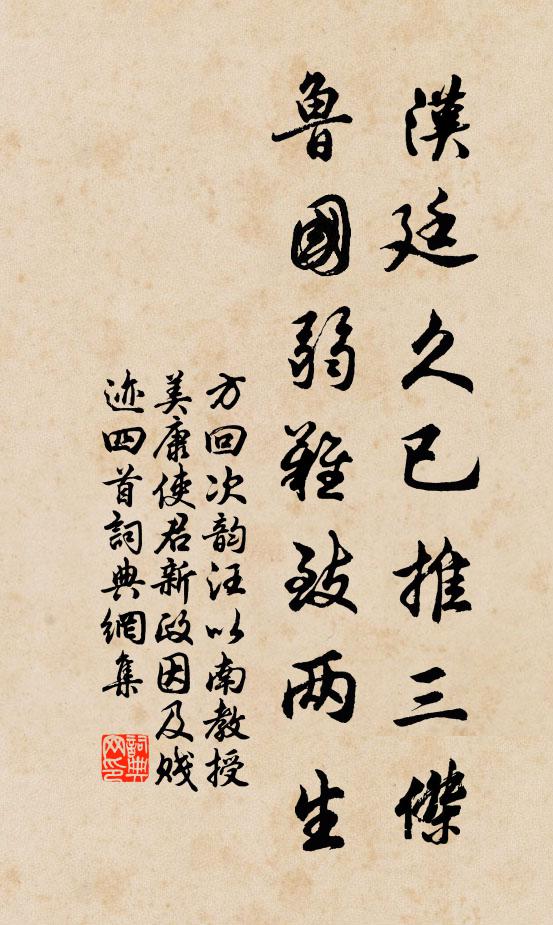 漢廷久已推三傑
魯國弱難致两生
方回次韵汪以南教授
美康使君新政因及贱
迹四首詞典網集
詞典网印